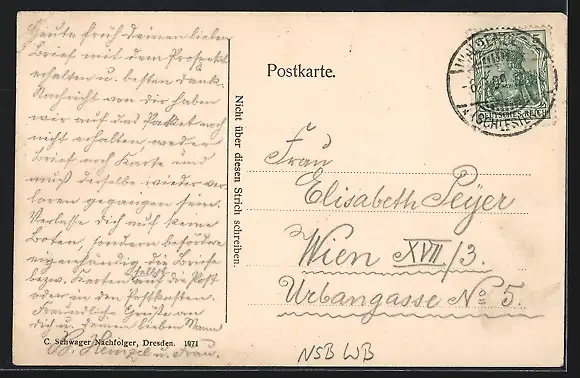 Heute früh deinen lieben
Brief mit dem Prospekt
erhalten u. besten Dank.
Nachricht von dir haben
wir auf das Packet noch
nicht erhalten, weder
Brief noch Karte und
muß derselbe wieder ver
loren gegangen sein.
Verlasse dich auf keine
Boten, sondern befördere
eigenhändig die Briefe
bezw. Karten selbst auf die Post
oder in den Postkasten.
Freundliche Grüße an
dich u. deinen lieben Mann
u. Frau.
C. Schwager Nachfolger, Dresden. 1071
Nicht über diesen Strich schreiben.
Postkarte.
DEUTSCHES REICH
5
(SCHLESIEN)
Frau
Elisabeth Peyer
Wien XVII/3.
Urbangasse No 5.
NSB WB